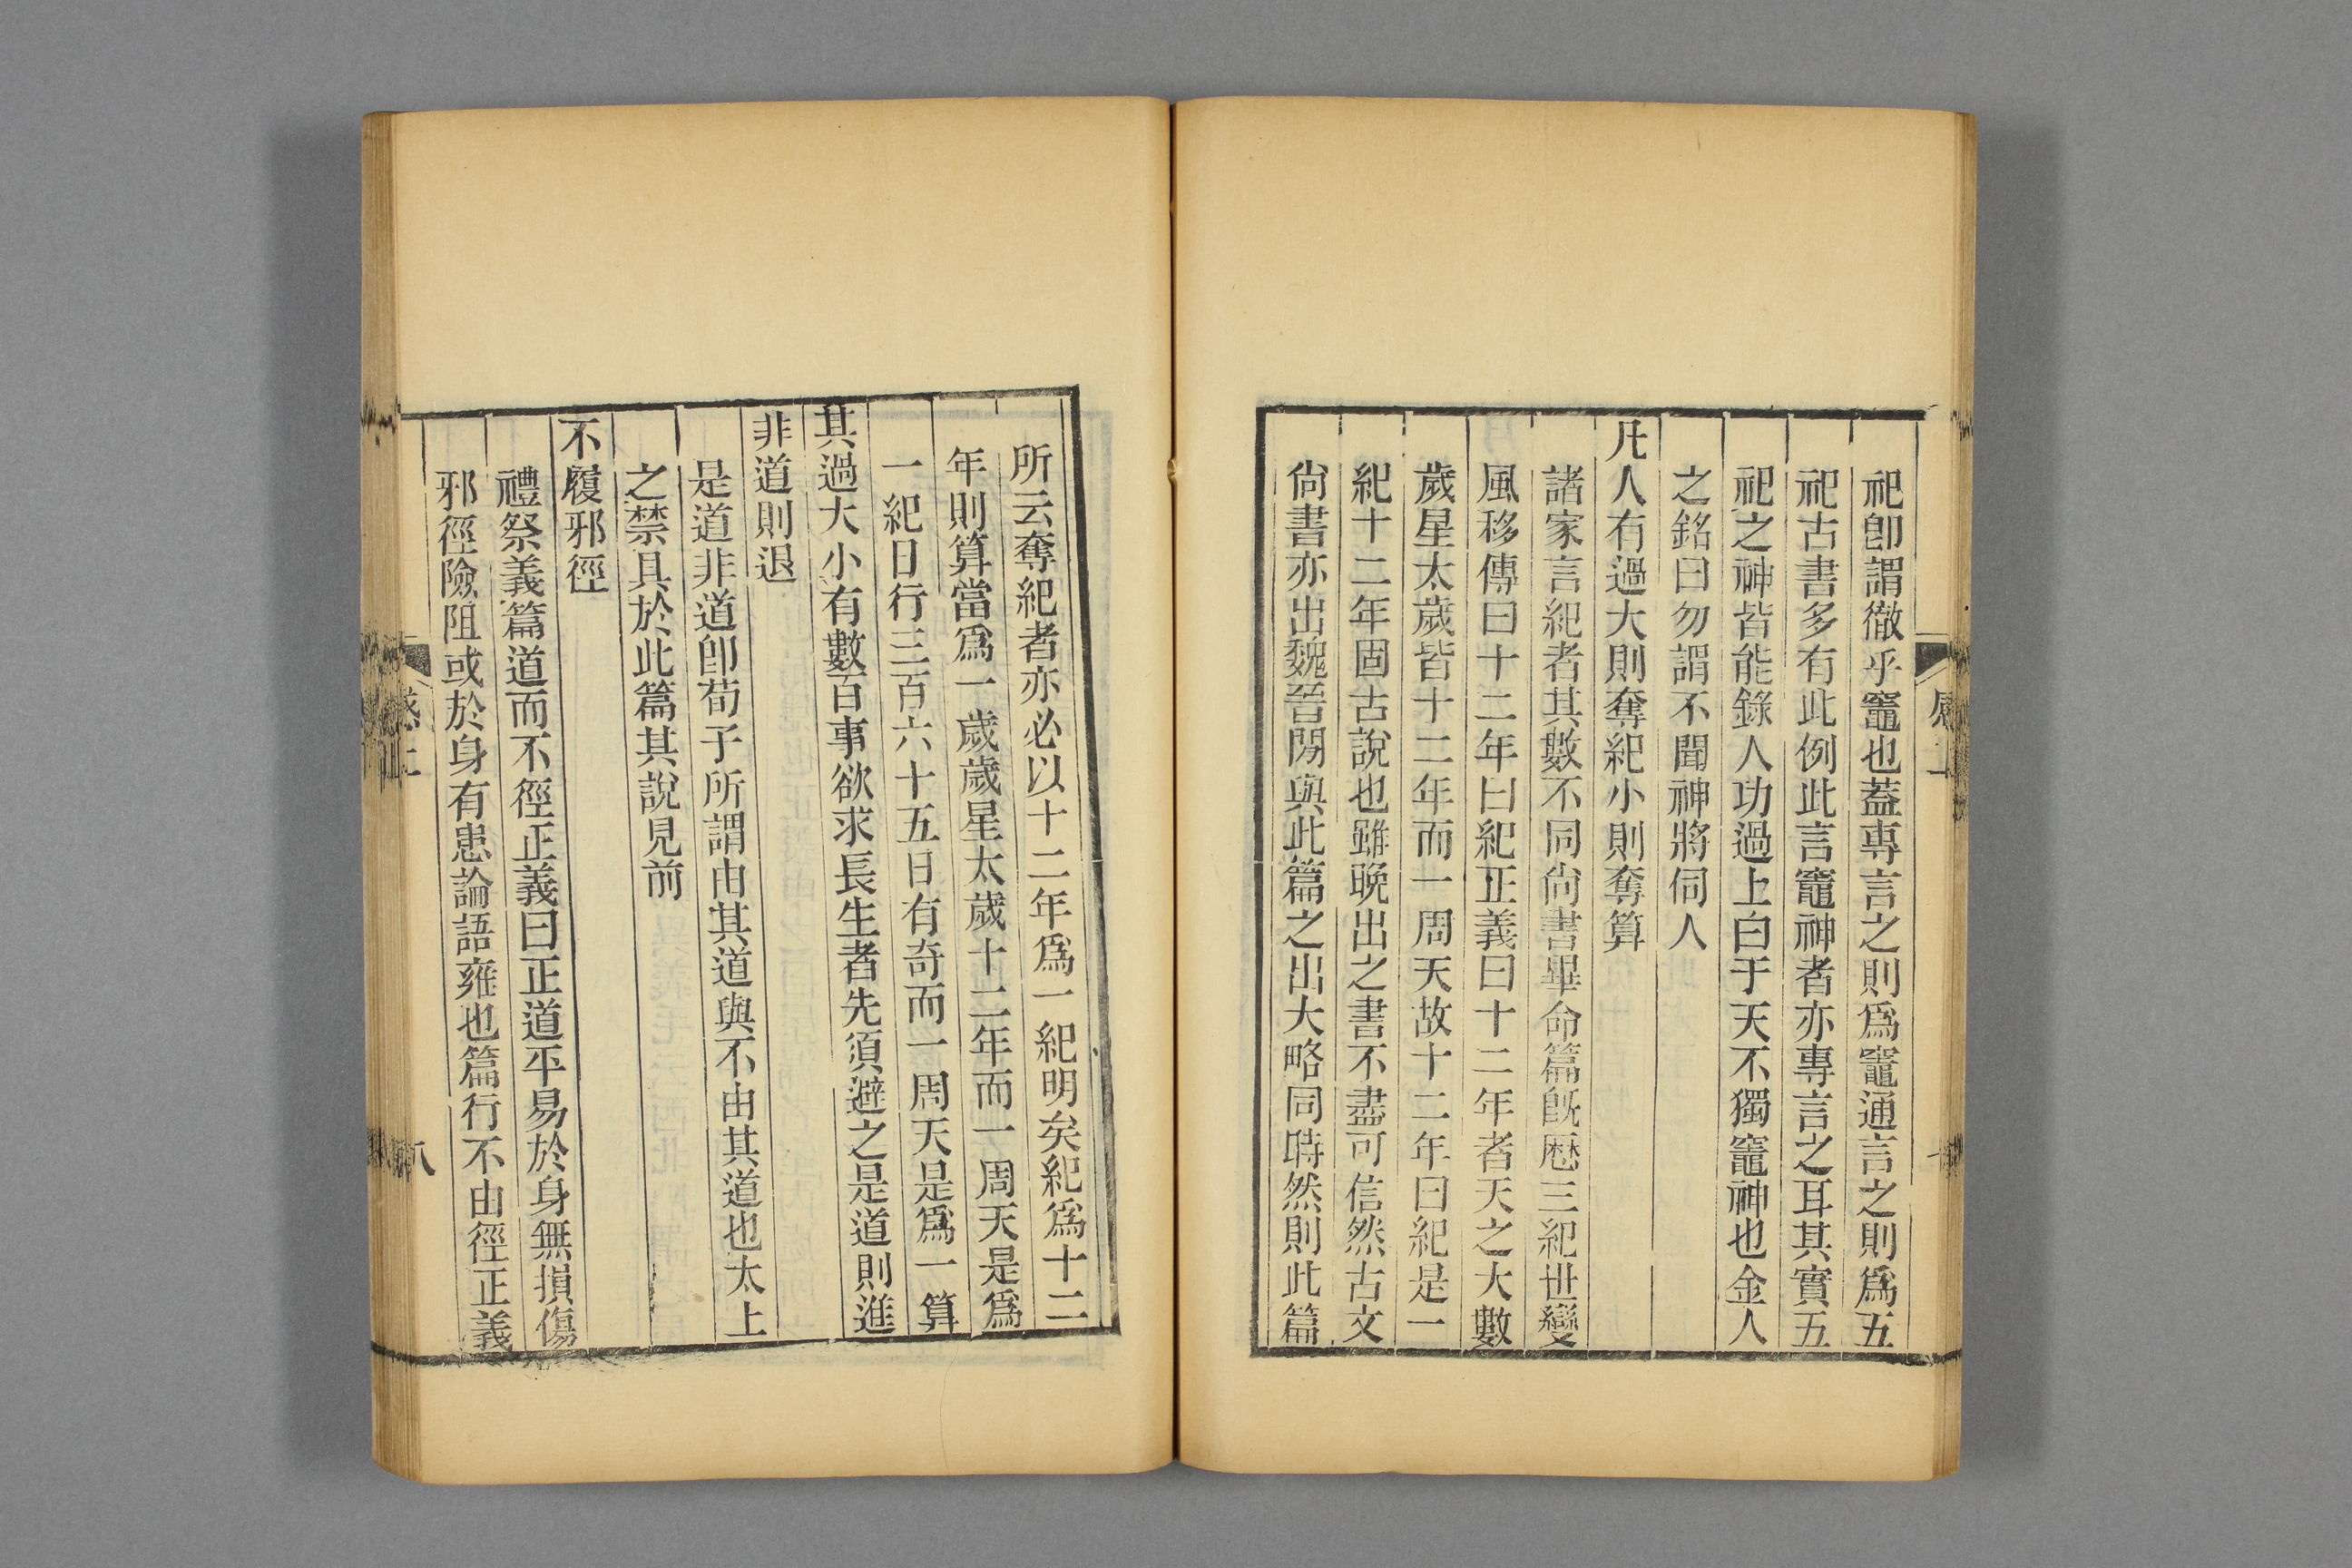 祀卽謂徹乎竈也蓋專言之則爲竈通言之則爲五
祀古書多有此例此言竈神者亦專言之耳其實五
祀之神皆能錄人功過上白于天不獨竈神也金人
之銘曰勿謂不聞神將伺人
凡人有過大則奪紀小則奪算
諸家言紀者其數不同尙書畢命篇旣厯三紀世變
風移傳曰十二年曰紀正義曰十二年者天之大數
歲星太歲皆十二年而一周天故十二年曰紀是一
紀十二年固古說也雖晚出之書不盡可信然古文
尙書亦出魏晉閒與此篇之出大略同時然則此篇
所云奪紀者亦必以十二年爲一紀明矣紀爲十二
年則算當爲一歲歲星太歲十二年而一周天是爲
一紀日行三百六十五日有奇而一周天是爲一算
其過大小有數百事欲求長生者先須避之是道則進
非道則退
是道非道卽荀子所謂由其道與不由其道也太上
之禁具於此篇其說見前
不履邪徑
禮祭義篇道而不徑正義曰正道平易於身無損傷
邪徑險阻或於身有患論語雍也篇行不由徑正義
感上
八